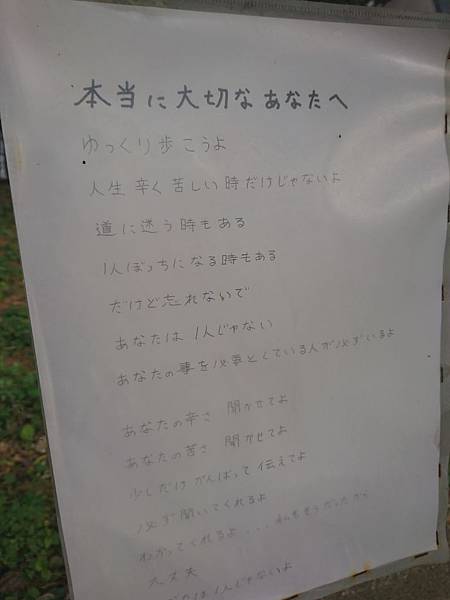 本当に大切なあなたへ
ゆっくり歩こうよ
人生辛く苦しい時だけじゃないよ
道に迷う時もある
1人ぼっちになる時もある
だけど忘れないで
あなたは1人じゃない
あなたの事を必要としている人が必ずいるよ
あなたの辛さ 聞かせてよ
あなたの苦さ 聞かせてよ
少しだけがんばって伝えてよ
必ず聞いてくれるよ
わかってくれるよ...私もそうだったから
大丈夫
は1人じゃないよ